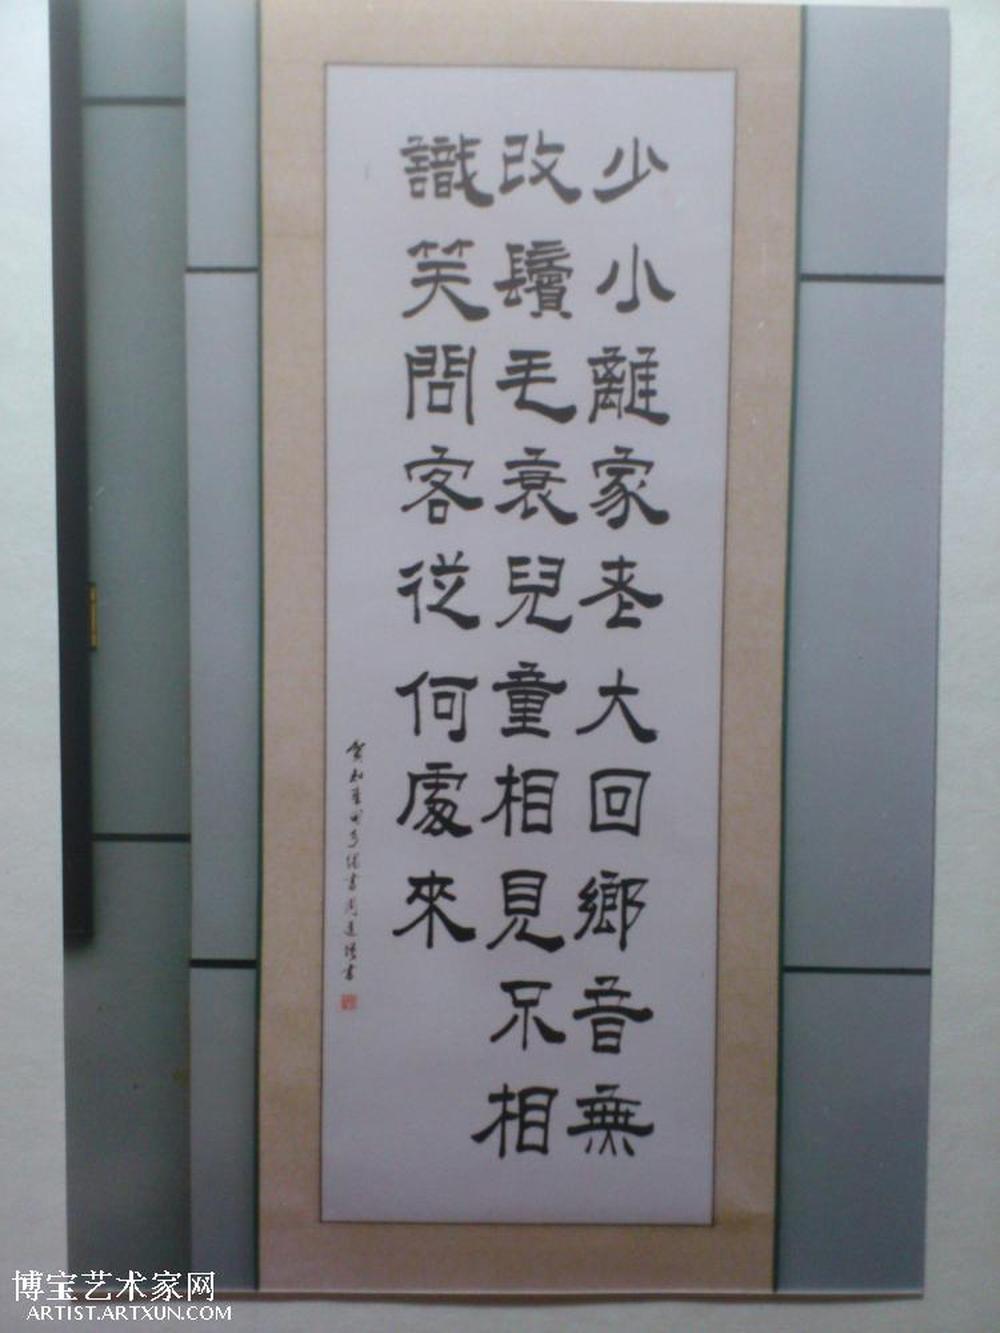 少小離家老大回鄉音無
改鬢毛衰兒童相見不相
識笑問客從何處來
賀知章回鄉偶書周道書
博宝艺术家网
ARTIST.ARTXUN.COM